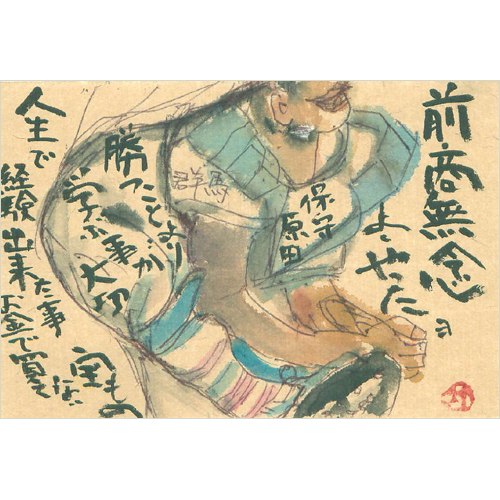 前商無念
よくやったヨ
保守
原田
群馬
勝つことより
学ぶ事が
大切
人生で
経験出来た事
お金で買え
ない
宝もの